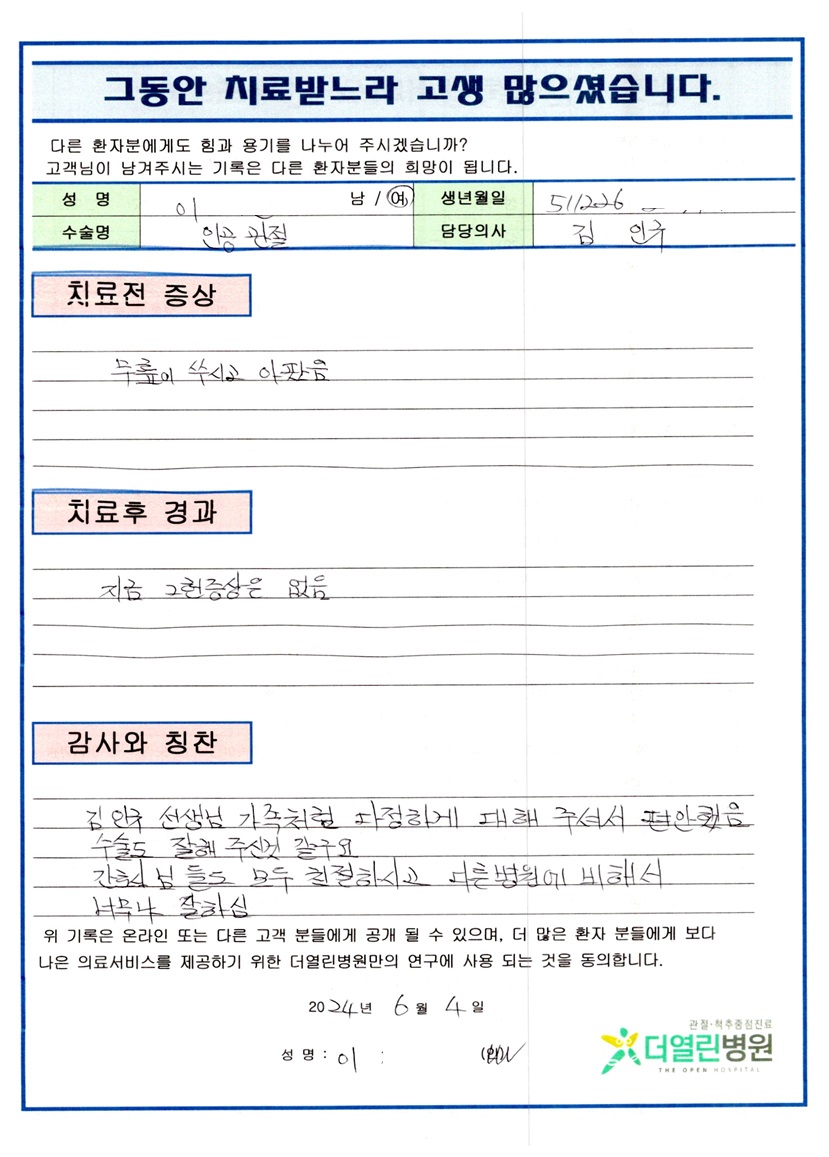 그동안 치료받느라 고생 많으셨습니다.
다른 환자분에게도 힘과 용기를 나누어 주시겠습니까?
고객님이 남겨주시는 기록은 다른 환자분들의 희망이 됩니다.
성 명 이 남 / 여 생년월일 511226
수술명 인공관절 담당의사 김 인구
치료전 증상
무릎이 쑤시고 아팠음
치료후 경과
지금 그런증상은 없음
감사와 칭찬
김인구 선생님 가족처럼 다정하게 대해 주셔서 편안했음
수술도 잘해 주신것 같구요
간호사님 들도 모두 친절하시고 다른병원에 비해서
너무나 잘하심
위 기록은 온라인 또는 다른 고객 분들에게 공개 될 수 있으며, 더 많은 환자 분들에게 보다
나은 의료서비스를 제공하기 위한 더열린병원만의 연구에 사용 되는 것을 동의합니다.
2024년 6월 4일
성 명 : 이
관절·척추중점진료
더열린병원
THE OPEN HOSPITAL